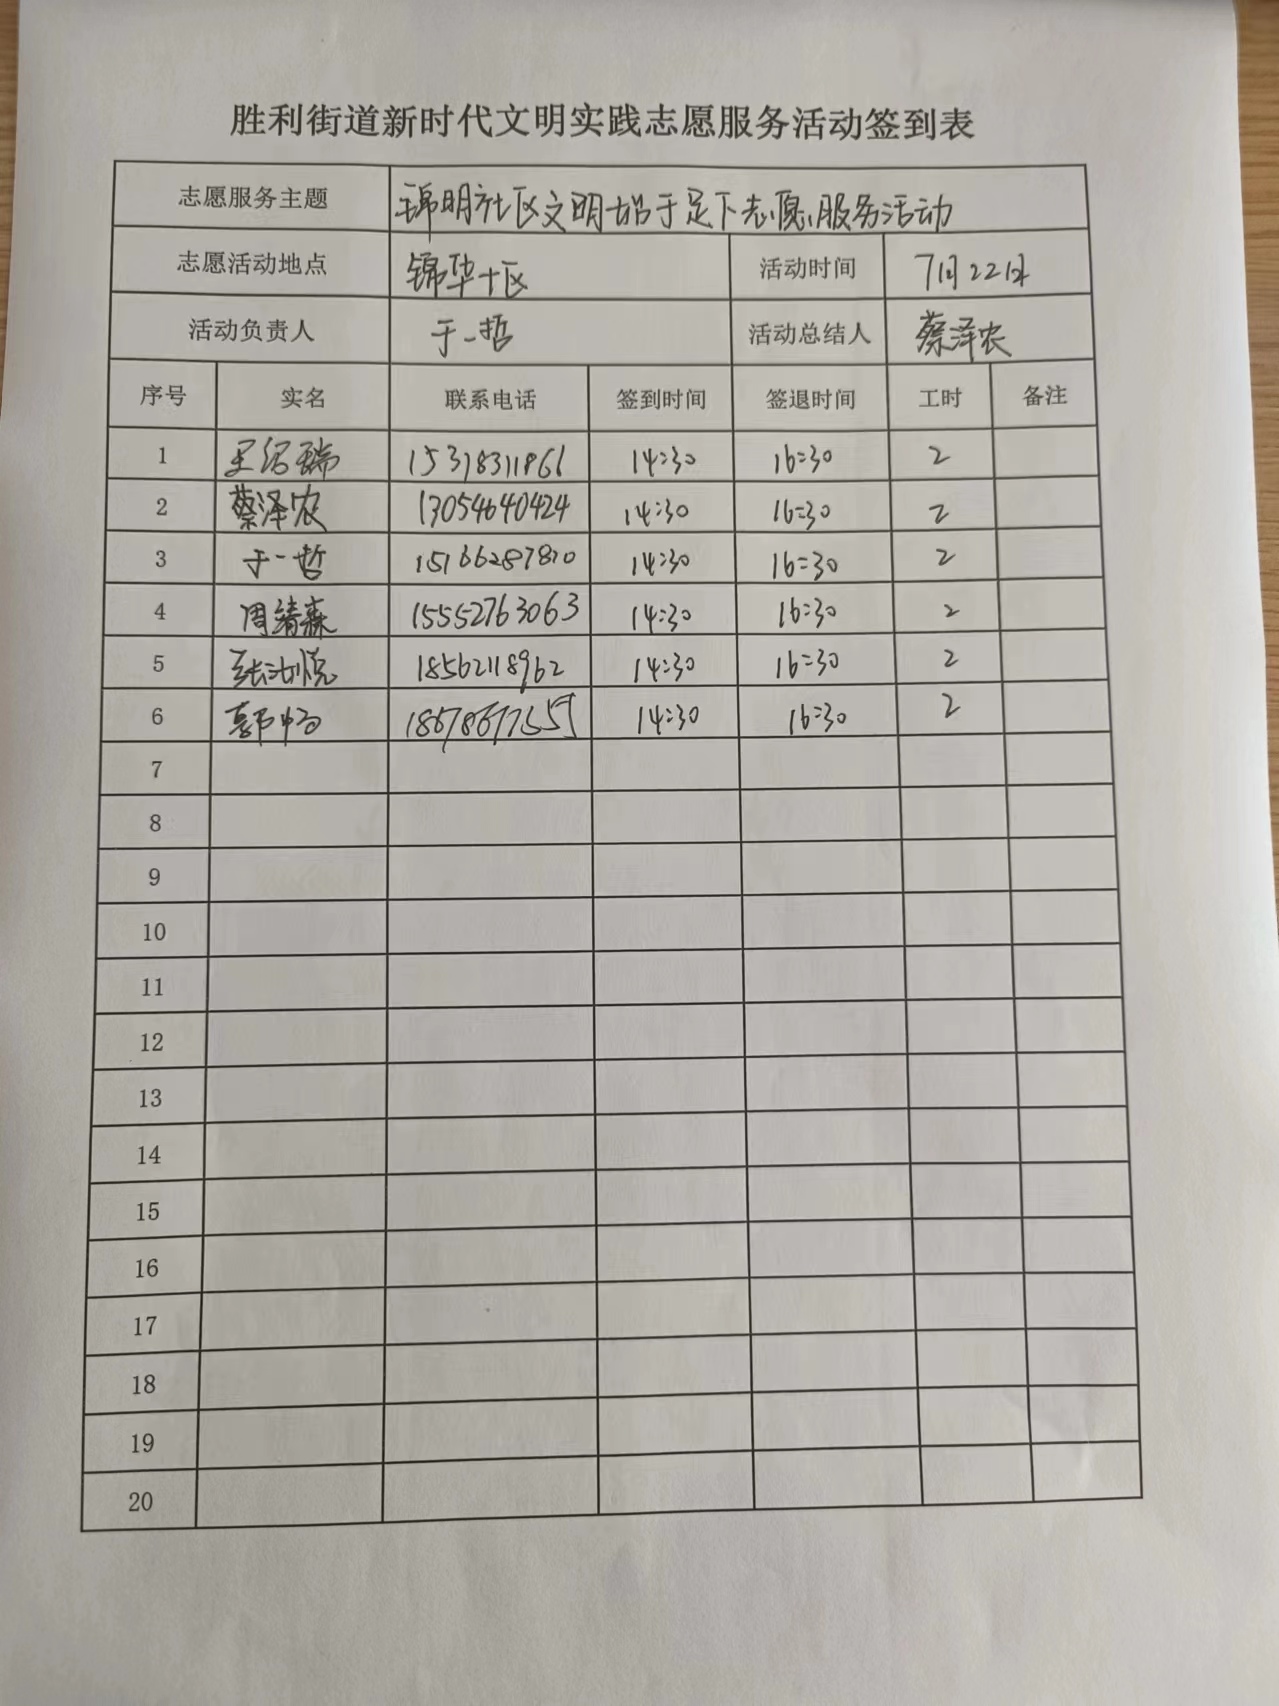 胜利街道新时代文明实践志愿服务活动签到表
志愿服务主题 锦明社区文明始于足下志愿服务活动
志愿活动地点 锦华十区 活动时间 7月22日
活动负责人 于一哲 活动总结人 蔡泽农
序号 实名 联系电话 签到时间 签退时间 工时 备注
1 王绍瑞 15318311861 14:30 16:30 2
2 蔡泽农 13054640424 14:30 16:30 2
3 于一哲 15166287810 14:30 16:30 2
4 周靖森 15552763063 14:30 16:30 2
5 18562118962 14:30 16:30 2
6 14:30 16:30 2
7
8
9
10
11
12
13
14
15
16
17
18
19
20